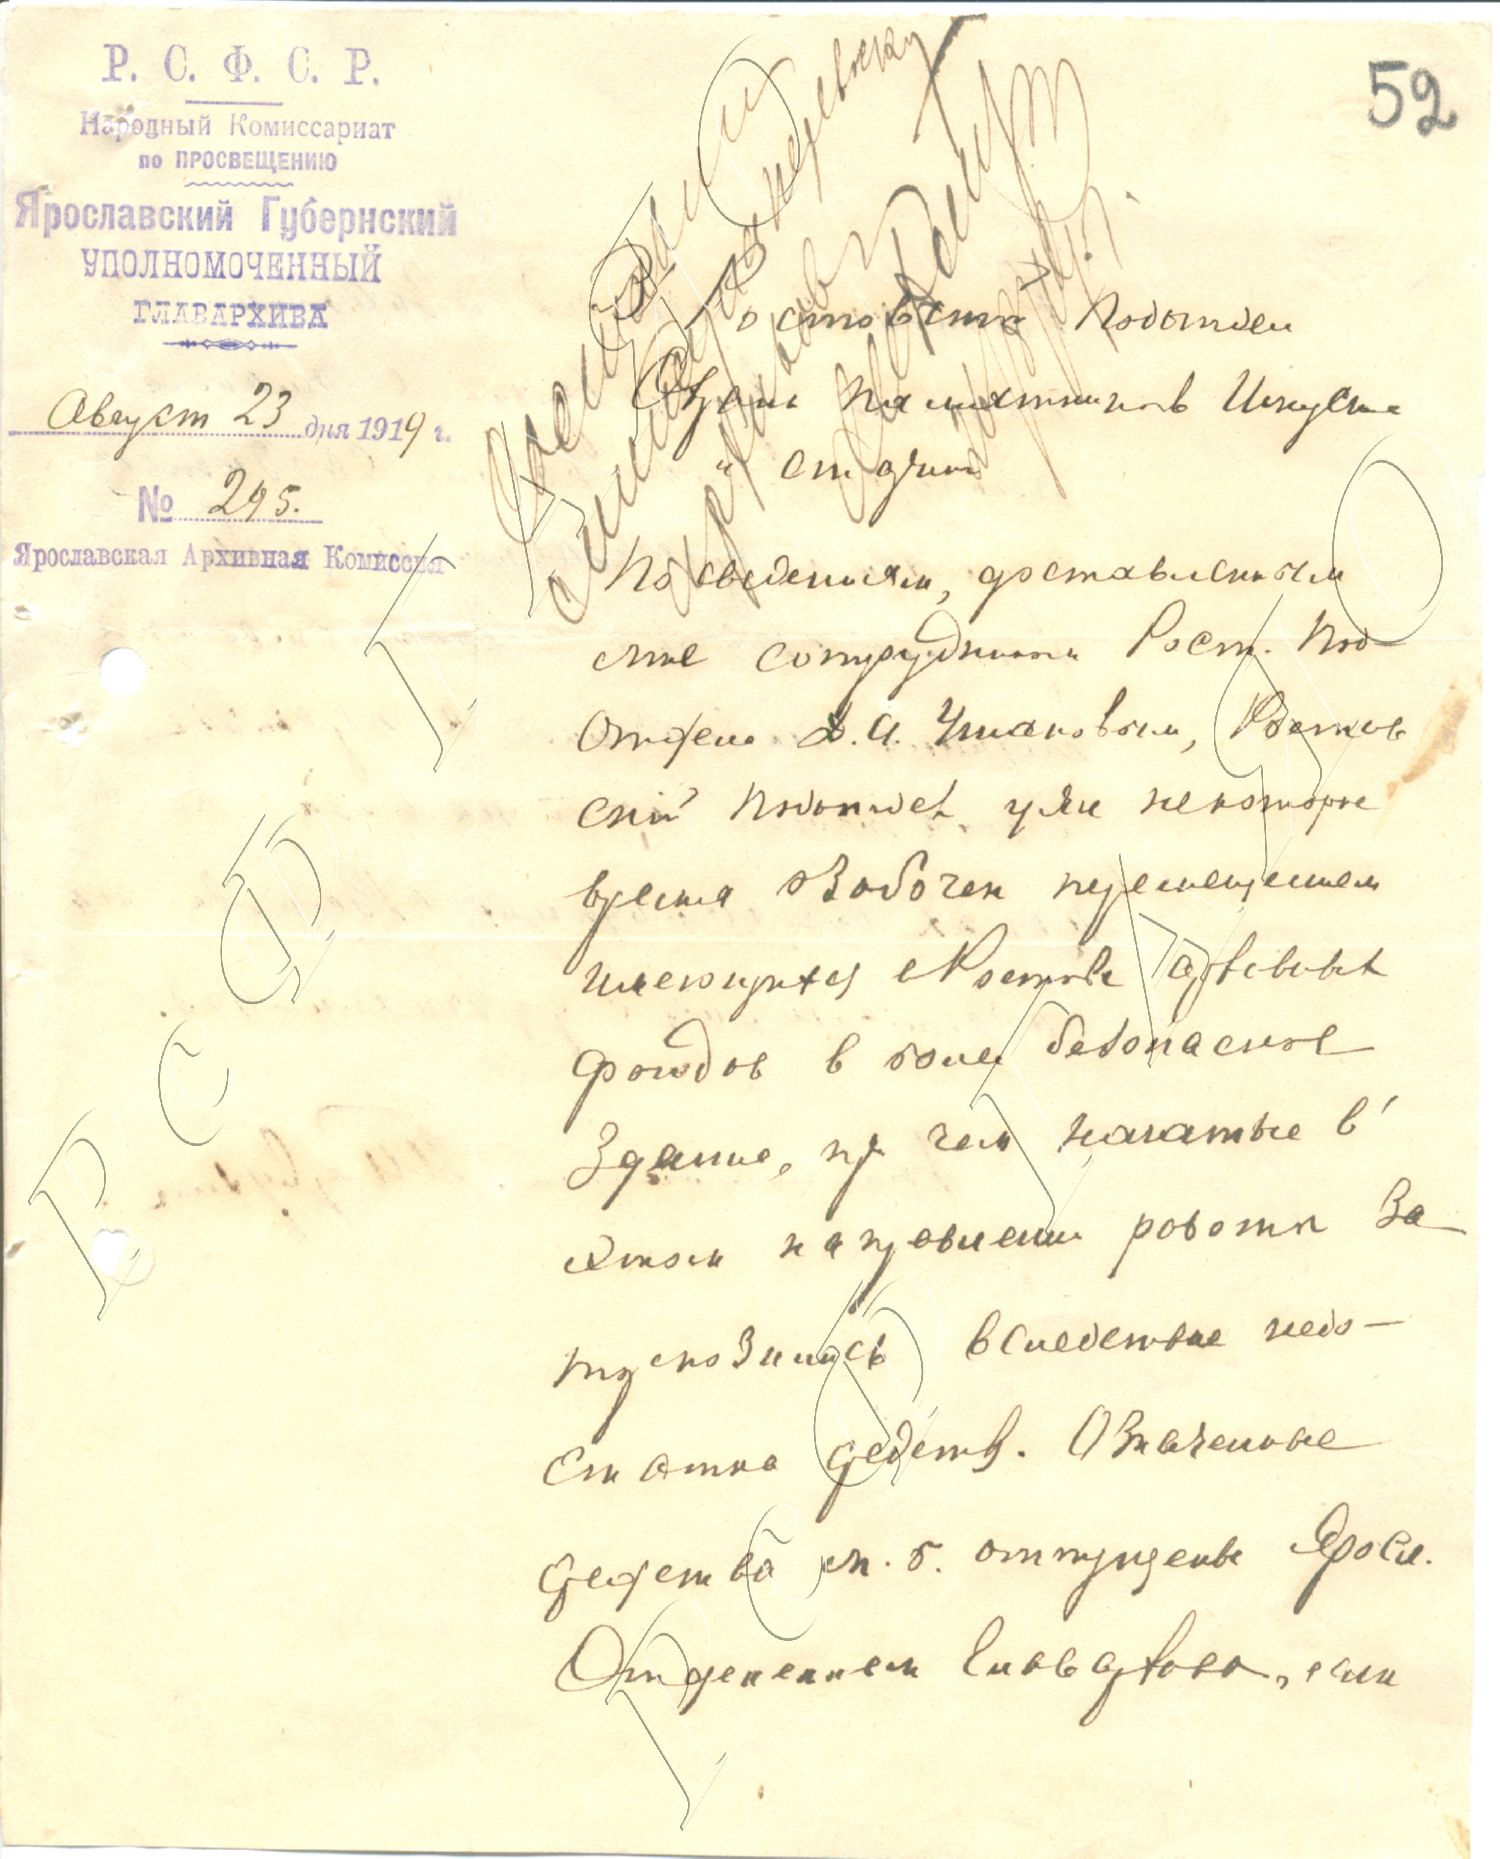 52
Р. С. Ф. С. Р.
Народный Комиссариат
по ПРОСВЕЩЕНИЮ
Ярославский Губернский
УПОЛНОМОЧЕННЫЙ
ГЛАВАРХИВА
Август 23 дня 1919 г.
№ 295.
Ярославская Архивная Комиссия
Ростовский Подотдел
Охраны Памятников Искусства
и старины
По сведениям, доставленным
мне сотрудником Рост. Под-
Отдела Д. А. Ушаковым, Ростов
ский Подотдел уже некоторое
время озабочен перемещением
имеющихся в Ростове архивных
фондов в более безопасное
здание, при чем начатые в
этом направлении работы за-
тормозились вследствие недо-
статка средств. Означенные
средства м. б. отпущены Яросл.
Отделением Главархива, если